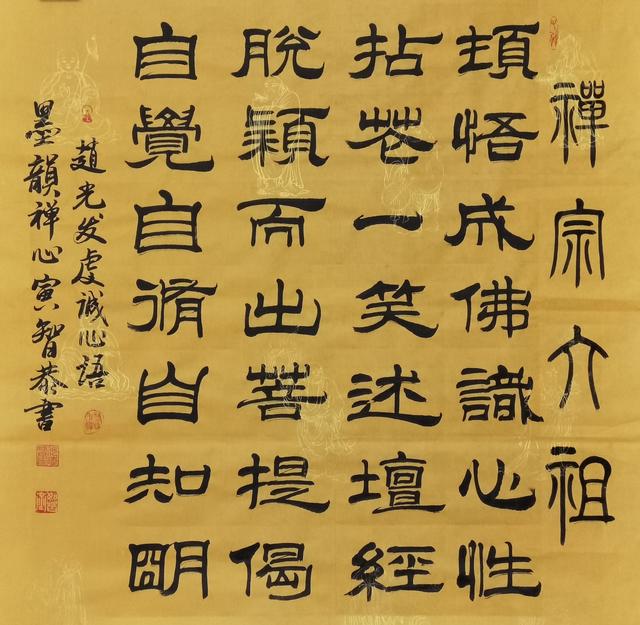 禪宗六祖
頓悟成佛識心性
拈花一笑述壇經
脫穎而出菩提偈
自覺自脩自知明
趙光发虔诚心語
墨韻禅心寅智恭書